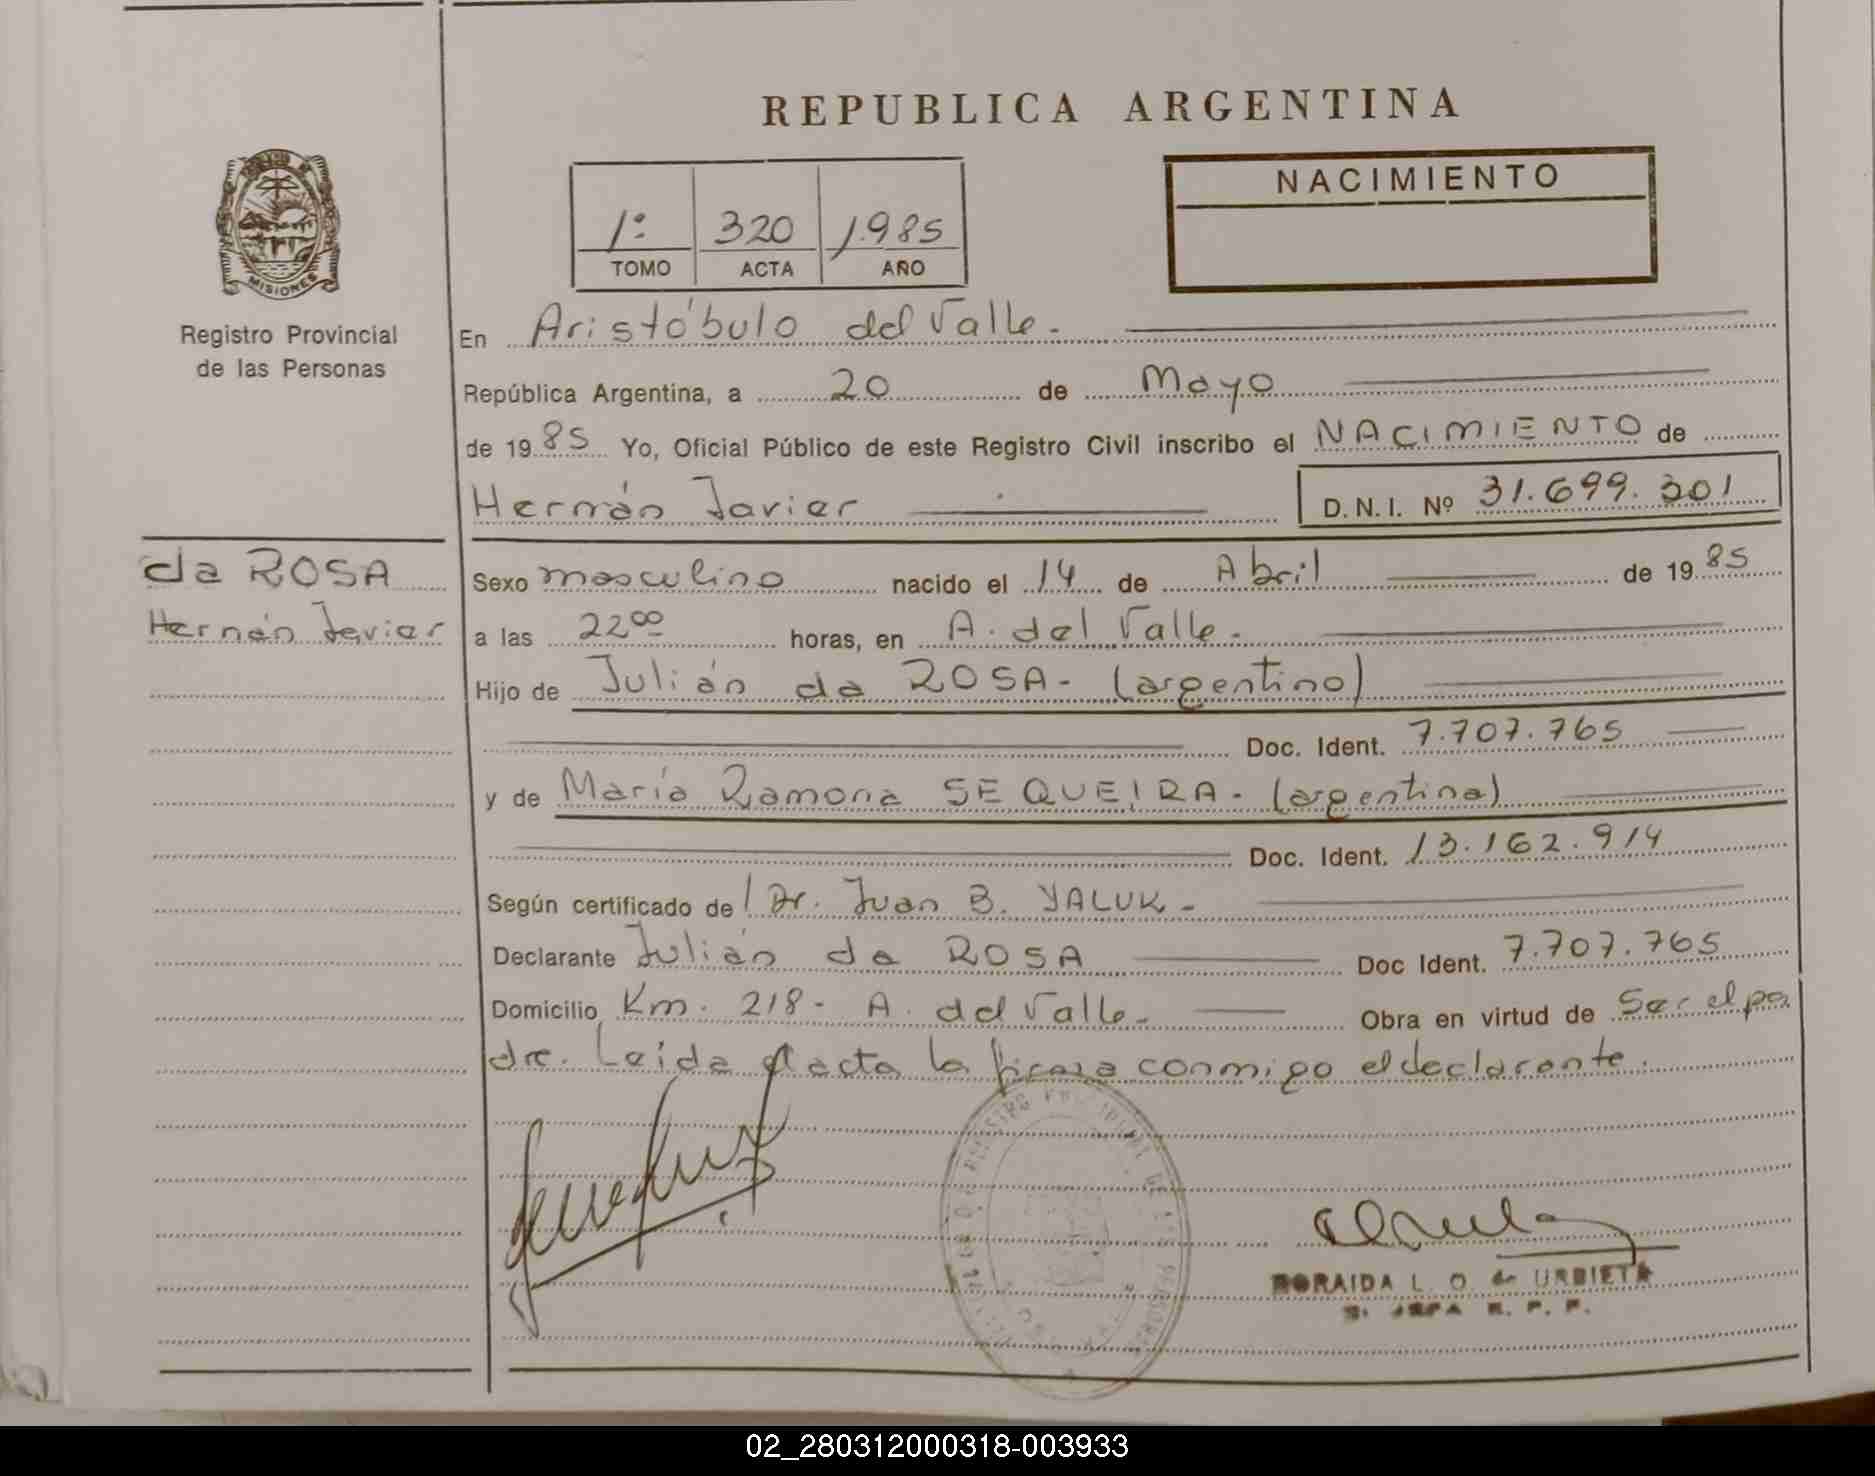 REPUBLICA ARGENTINA
NACIMIENTO
1º 320 1.985
TOMO ACTA AÑO
MISIONES
Registro Provincial
de las Personas
En Aristóbulo del Valle.
República Argentina, a 20 de Mayo
de 1985 Yo, Oficial Público de este Registro Civil inscribo el NACIMIENTO de
Hernán Javier D.N.I. Nº 31.699.301
da ROSA
Hernán Javier
Sexo masculino nacido el 14 de Abril de 1985
a las 22⁰⁰ horas, en A. del Valle.
Hijo de Julián da ROSA- (argentino)
Doc. Ident. 7.707.765
y de María Ramona SEQUEIRA- (argentina)
Doc. Ident. 13.162.914
Según certificado de/ Dr. Juan B. YALUK-
Declarante Julián da ROSA Doc Ident. 7.707.765
Domicilio Km. 218- A. del Valle- Obra en virtud de Ser el pa
dre. Leída el acta la firma conmigo el declarante.
REGISTRO DE LAS PERSONAS
L. O. de URBIETA
R. P. P.
02_280312000318-003933